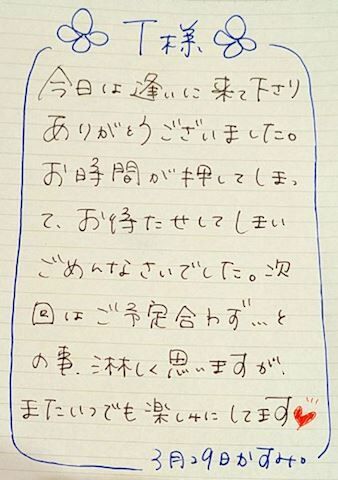 T様
今日は逢いに来て下さり
ありがとうございました。
お時間が押してしまっ
て、お待たせしてしまい
ごめんなさいでした。次
回はご予定合わず…と
の事、淋しく思いますが、
またいつでも楽しみにしてます
3月29日かすみ。